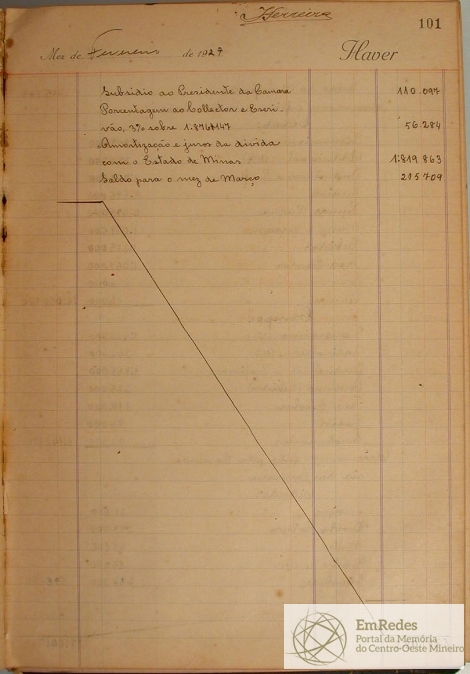 Ferreira
101
Mez de Fevereiro de 1927
Haver
Subsidio ao Presidente da Camara 110.097
Porcentagem ao Collector e Escri-
vão, 3% sobre 1:876$147 56.284
Amortização e juros da divida
com o Estado de Minas 1:819 863
Saldo para o mez de Março 215709
EmRedes
Portal da Memória
do Centro-Oeste Mineiro